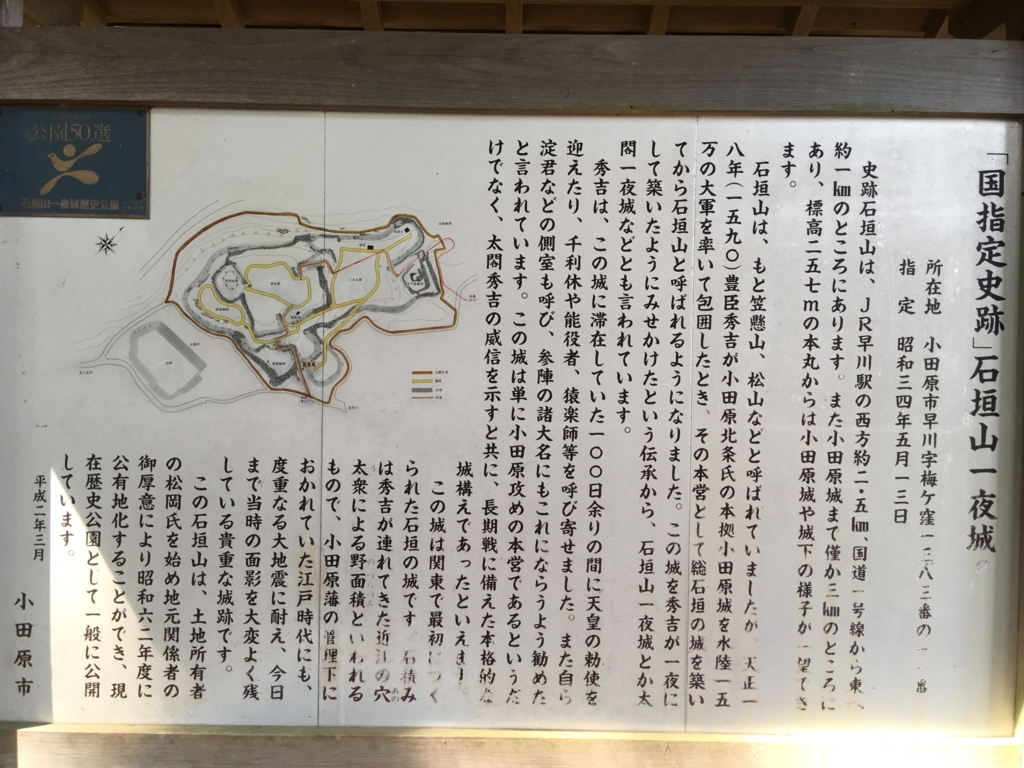 「国指定史跡」石垣山一夜城
所在地 小田原市早川字梅ケ窪一三八三番の一 番
指 定 昭和三四年五月一三日
史跡石垣山は、JR早川駅の西方約二・五km、国道一号線から東へ
約一kmのところにあります。また小田原城まで僅か三kmのところに
あり、標高二五七mの本丸からは小田原城や城下の様子が一望でき
ます。
石垣山は、もと笠懸山、松山などと呼ばれていましたが、天正一
八年(一五九〇)豊臣秀吉が小田原北条氏の本拠小田原城を水陸一五
万の大軍を率いて包囲したとき、その本営として総石垣の城を築い
てから石垣山と呼ばれるようになりました。この城を秀吉が一夜に
して築いたようにみせかけたという伝承から、石垣山一夜城とか太
閤一夜城などとも言われています。
秀吉は、この城に滞在していた一〇〇日余りの間に天皇の勅使を
迎えたり、千利休や能役者、猿楽師等を呼び寄せました。また自ら
淀君などの側室も呼び、参陣の諸大名にもこれにならうよう勧めた
と言われています。この城は単に小田原攻めの本営であるというだ
けでなく、太閤秀吉の威信を示すと共に、長期戦に備えた本格的な
城構えであったといえます。
この城は関東で最初につく
られた石垣の城です 石積み
は秀吉が連れてきた近江の穴
太衆による野面積といわれる
もので、小田原藩の管理下に
おかれていた江戸時代にも、
度重なる大地震に耐え、今日
まで当時の面影を大変よく残
している貴重な城跡です。
この石垣山は、土地所有者
の松岡氏を始め地元関係者の
御厚意により昭和六二年度に
公有地化することができ、現
在歴史公園として一般に公開
しています。
平成二年三月
小田原市
公園50選
石垣山一夜城歴史公園